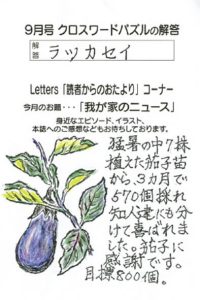 9月号 クロスワードパズルの解答
解答 ラッカセイ
Letters「読者からのおたより」コーナー
今月のお題…「我が家のニュース」
身近なエピソード、イラスト、
本誌へのご感想などもお待ちしております。
猛暑の中7株
植えた茄子苗
から、3カ月で
570個採れ
知人達にも分
けて喜ばれま
した。茄子に
感謝です。
目標800個。